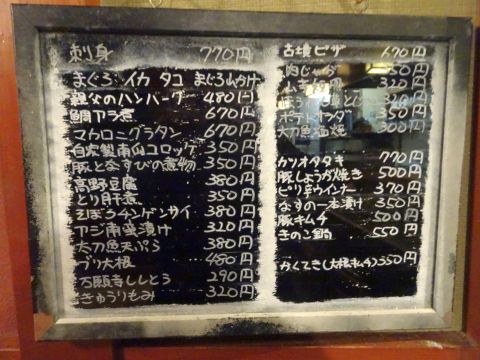 刺身 770円
まぐろ イカ タコ まぐろ山かけ
親父のハンバーグ 480(-)
鯛アラ煮 670円
マカロニグラタン 670円
自家製南山コロッケ 350円
豚となすびの煮物 350円
高野豆腐 380円
とり肝煮 350円
チンゲンサイ 380円
アジ南蛮漬け 320円
太刀魚天ぷら 380円
ブリ大根 480円
万願寺ししとう 290円
きゅうりもみ 320円
古墳ピザ 670円
肉じゃが 350円
320円
320円
ポテトサラダ 350円
太刀魚塩焼 300円
カツオタタキ 770円
豚しょうが焼き 500円
ピリ辛ウインナー 370円
なすの一本漬け 350円
豚キムチ 500円
きのこ鍋 550円
かくてき(大根キムチ)350円